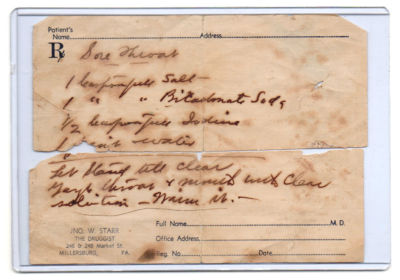 Patient's
Name Address
Rx Sore Throat
1 teaspoonfull Salt
1 " " Bicarbonate Soda
1/2 teaspoonfull Iodine
1 pint water
Let stand till clear
Gargle throat & mouth with clear
solution - Warm it. -
JNO. W. STARR
THE DRUGGIST
246 & 248 Market St.
MILLERSBURG, PA.
Full Name M.D.
Office Address
Reg. No. Date